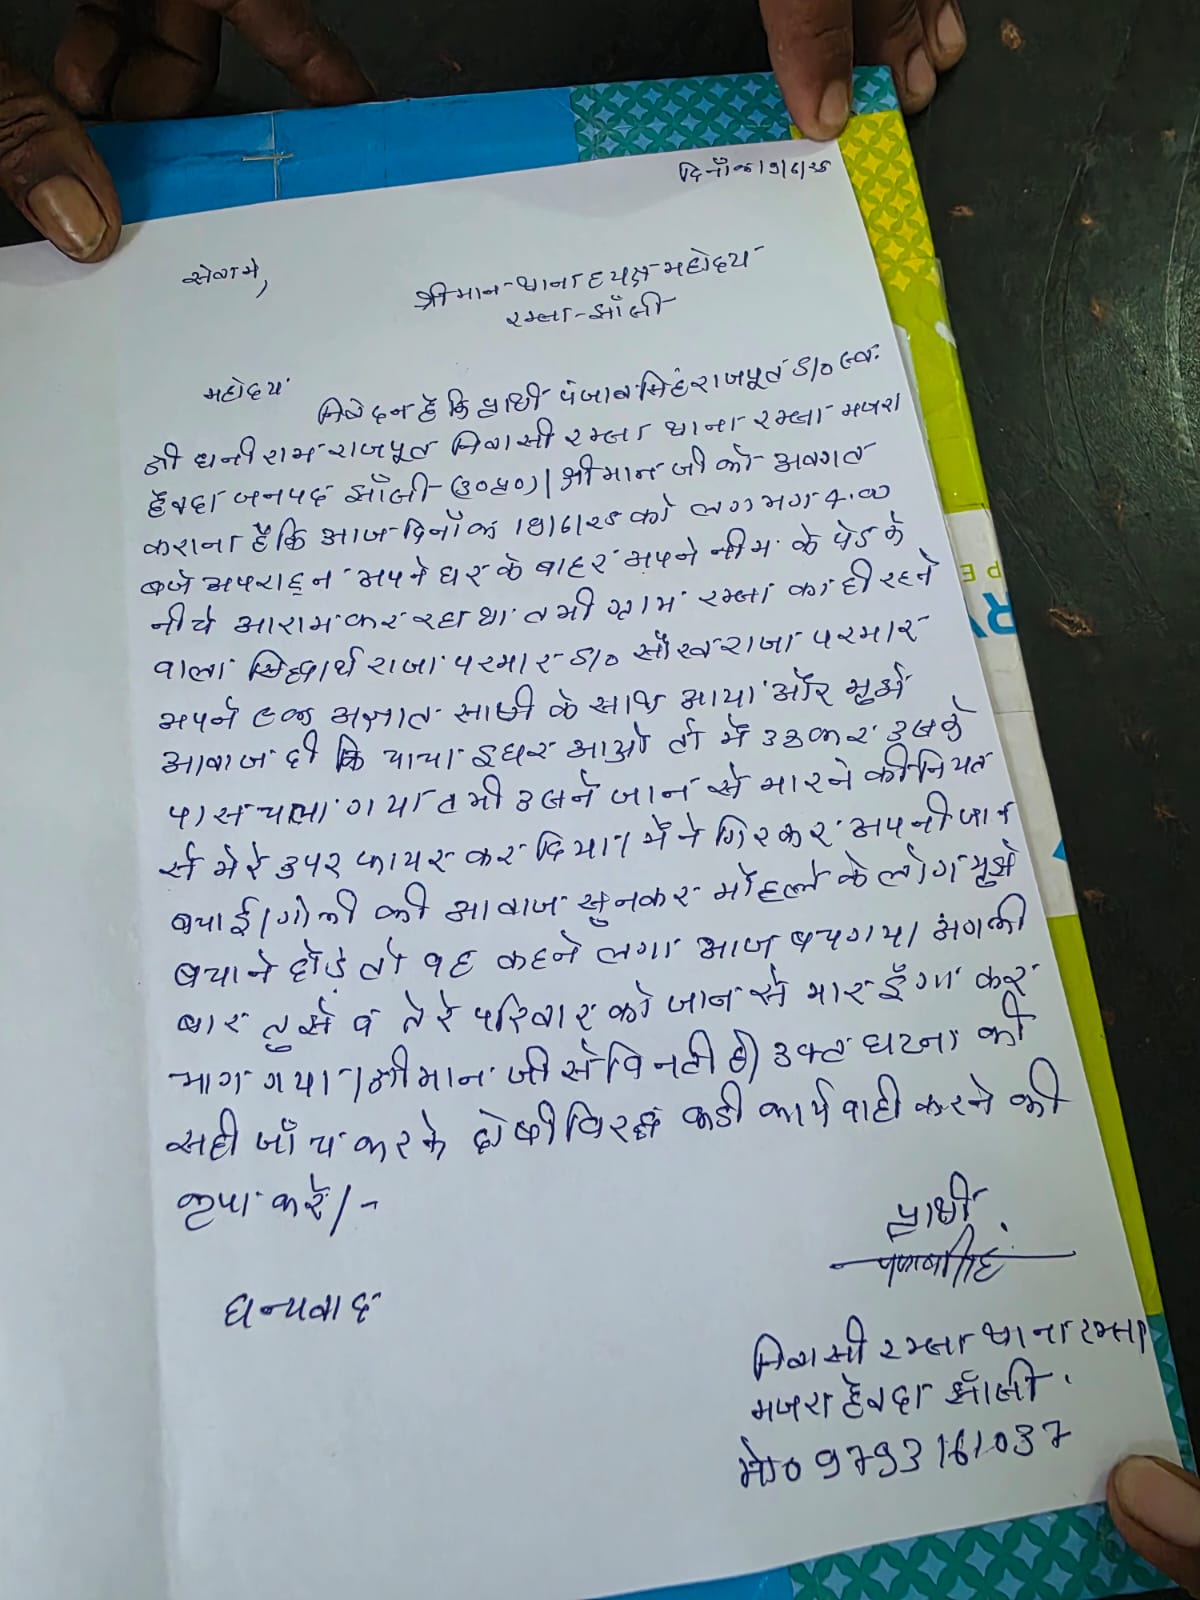 दिनाँक 19/6/25
सेवा मे,
श्रीमान थानाध्यक्ष महोदय
रक्सा-झाँसी
महोदय
निवेदन है कि प्रार्थी पंजाब सिंह राजपूत S/O स्व.
श्री धनीराम राजपूत निवासी रक्सा थाना रक्सा मजरा
हेवदा जनपद झाँसी (उ०प्र०) श्रीमान जी को अवगत
कराना है कि आज दिनाँक 19/6/25 को लगभग 4.00
बजे अपराह्न अपने घर के बाहर अपने नीम के पेड के
नीचे आराम कर रहा था तभी ग्राम रक्सा का ही रहने
वाला सिद्धार्थ राजा परमार S/O राजा परमार
अपने एक अज्ञात साथी के साथ आया और मुझे
आवाज दी कि चाचा इधर आओ तो मैं उठकर उसके
पास चला गया तभी उसने जान से मारने की नियत
से मेरे उपर फायर कर दिया। मैंने गिरकर अपनी जान
बचाई। गोली की आवाज सुनकर मोहल्ले के लोग मुझे
बचाने दौड़े तो वह कहने लगा आज बच गया अगली
बार तुझे व तेरे परिवार को जान से मार दूँगा कर
भाग गया। श्रीमान जी से विनती है उक्त घटना की
सही जाँच करके दोषी विरुद्ध कडी कार्यवाही करने की
कृपा करें।-
प्रार्थी
धन्यवाद
निवासी रक्सा थाना रक्सा
मजरा हेवदा झाँसी.
मो० 9793161037